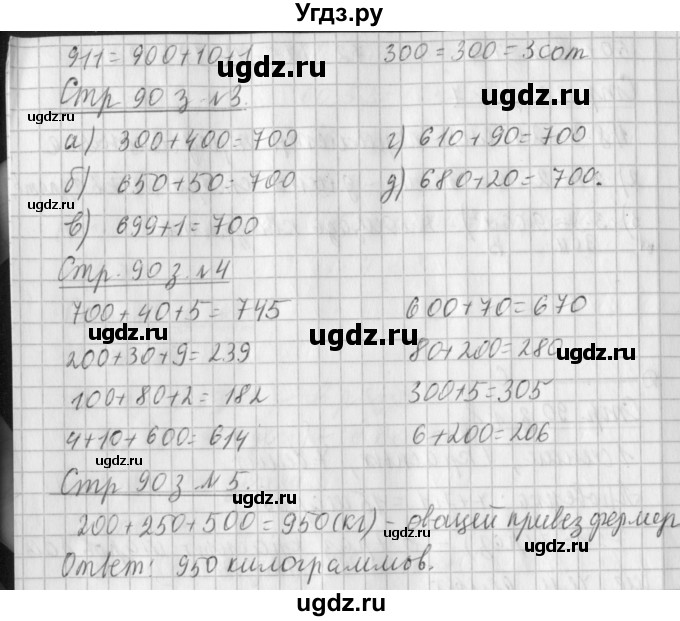 Угдз.ру
911 = 900+10+1 300 = 300 = 3 сот
Стр 90 з №3.
а) 300+400=700 г) 610+90=700
б) 650+50=700 д) 680+20=700.
в) 699+1=700
Стр. 90 з. №4
700+40+5=745 600+70=670
200+30+9=239 80+200=280
100+80+2=182 300+5=305
4+10+600=614 6+200=206
Стр 90 з №5.
200+250+500=950(кг) - овощей привез фермер
Ответ: 950 килограммов.
ugdz.ru
ugdz.ru
ugdz.ru
ugdz.ru
ugdz.ru
ugdz.ru
ugdz.ru
ugdz.ru
ugdz.ru
ugdz.ru
ugdz.ru
ugdz.ru
ugdz.ru